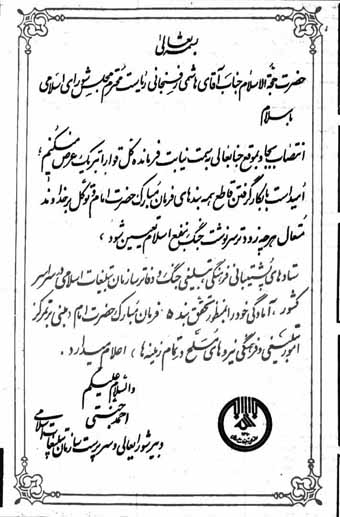 بسمه تعالی
حضرت حجةالاسلام جناب آقای هاشمی رفسنجانی ریاست محترم مجلس شورای اسلامی
با سلام
انتصاب بجا و بموقع جنابعالی بسمت نیابت فرمانده کل قوا را تبریک عرض میکنیم؛
امید است با بکار گرفتن قاطع همه بندهای فرمان مبارک حضرت امام و توکل بر خداوند
متعال هر چه زودتر سرنوشت جنگ بنفع اسلام تعیین شود،
ستادهای پشتیبانی فرهنگی، تبلیغی جنگ و دفاتر سازمان تبلیغات اسلامی در سراسر
کشور، آمادگی خود را بمنظور تحقق بند ۵ فرمان مبارک حضرت امام (مبنی بر تمرکز
امور تبلیغی و فرهنگی نیروهای مسلح در تمام زمینه ها) اعلام میدارد.
والسلام علیکم
احمد جنتی
دبیر شورایعالی و سرپرست سازمان تبلیغات اسلامی